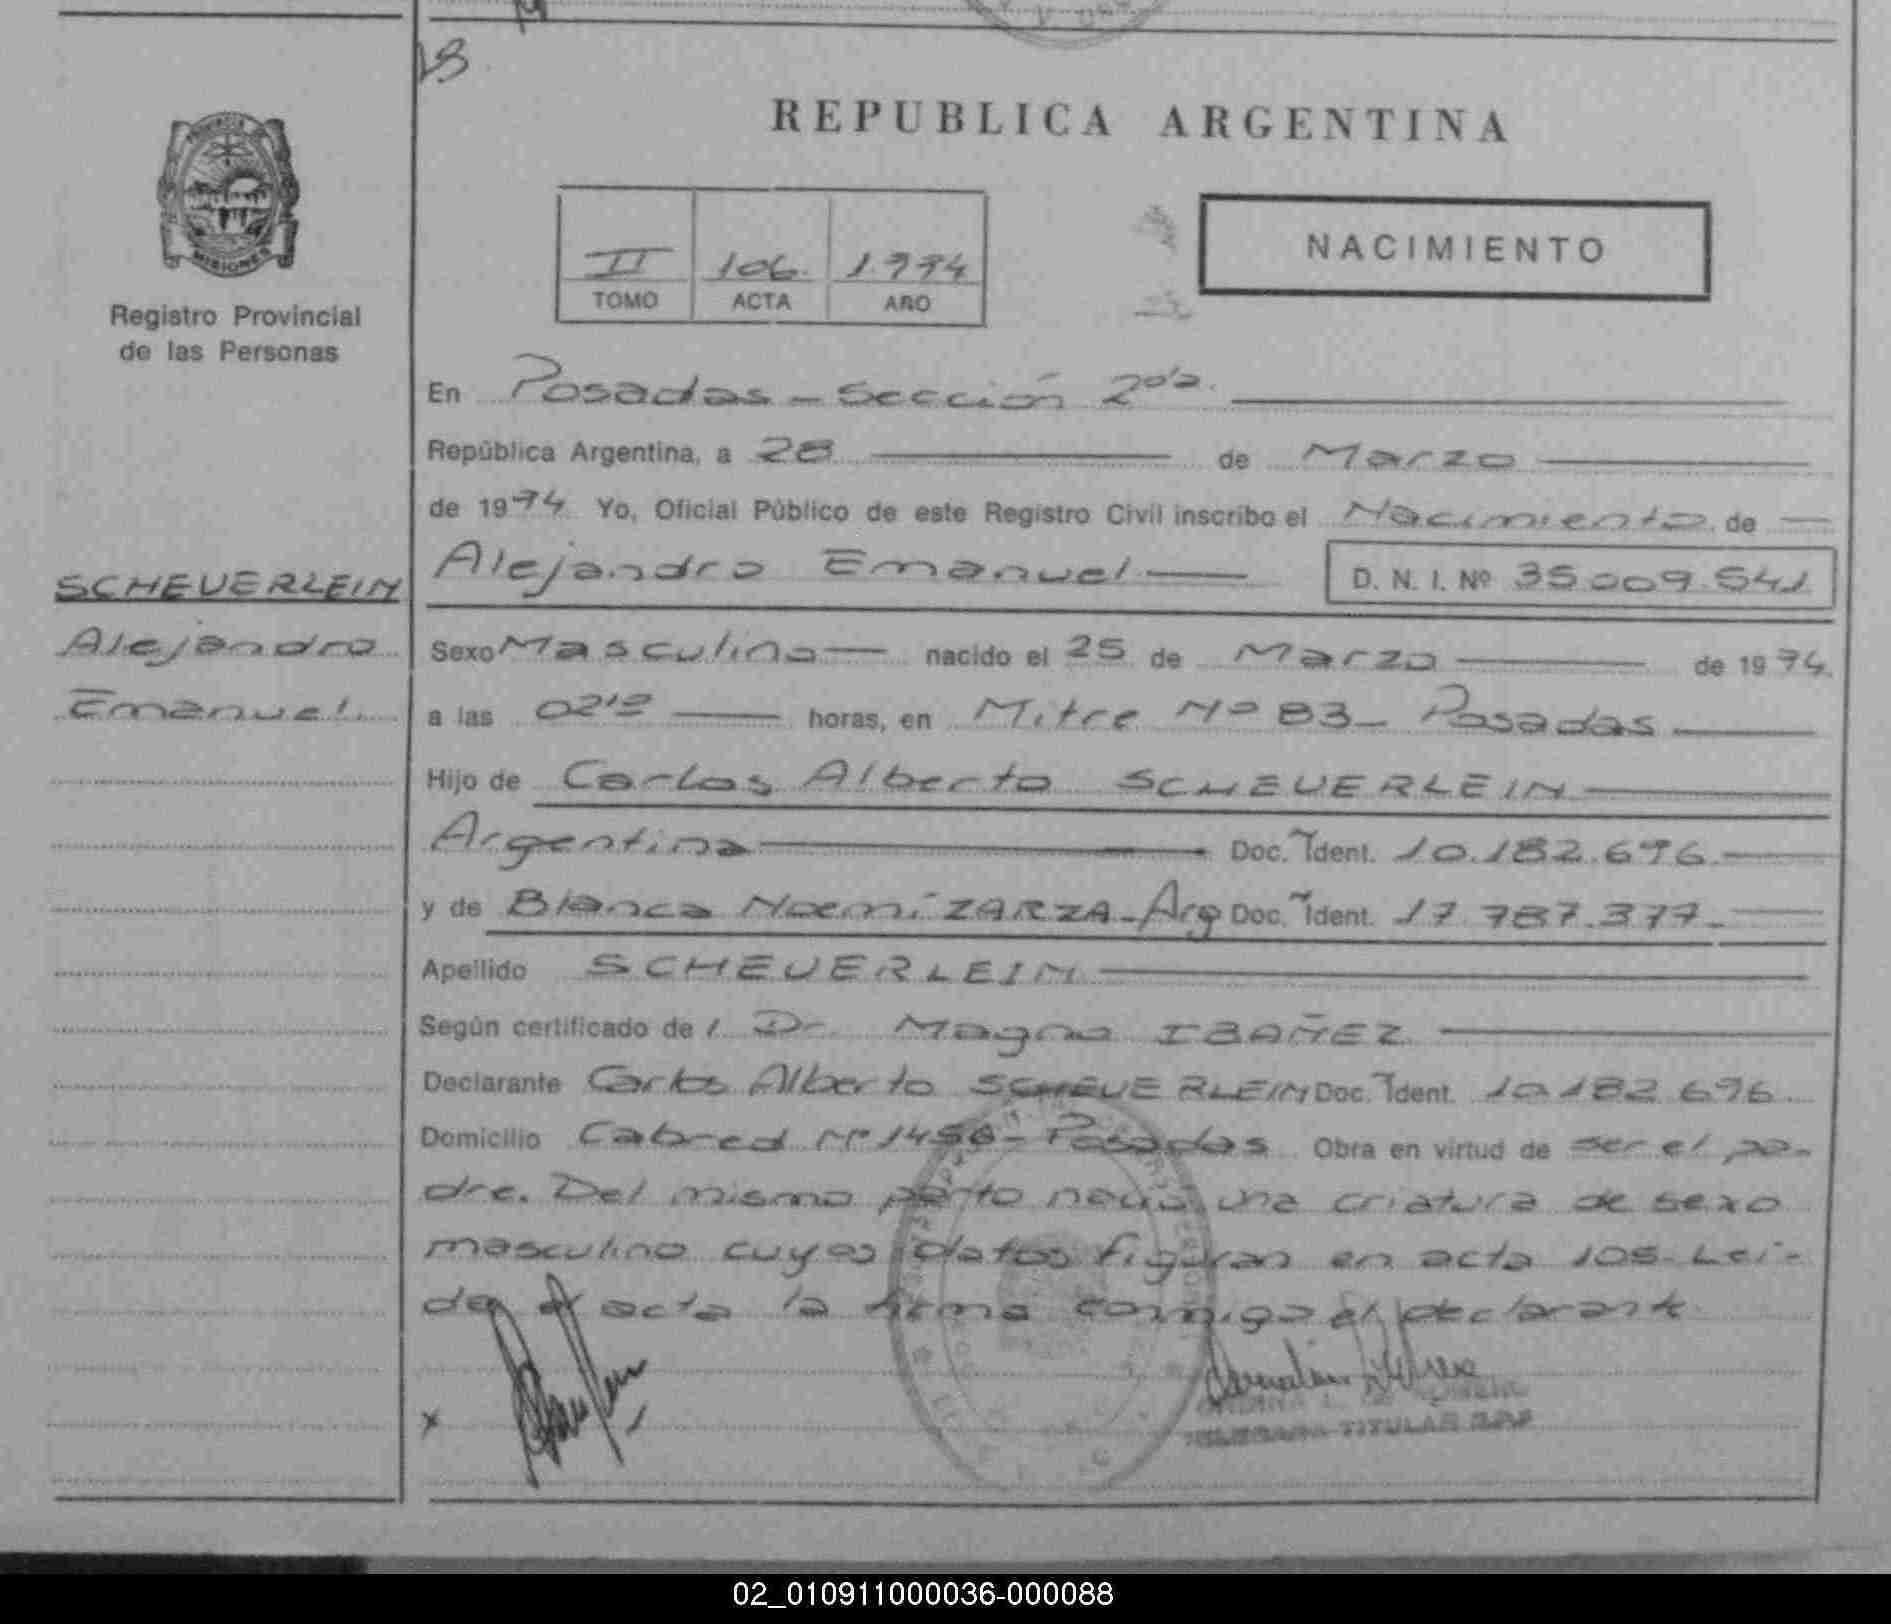 18
REPUBLICA ARGENTINA
PROVINCIA DE
MISIONES
NACIMIENTO
II 106. 1.994
TOMO ACTA AÑO
Registro Provincial
de las Personas
En Posadas - Sección 2da.
República Argentina, a 28 de Marzo
de 1994 Yo, Oficial Público de este Registro Civil inscribo el Nacimiento de
Alejandro Emanuel D. N. I. Nº 35.009.541
SCHEUERLEIN
Alejandro
Emanuel.
Sexo Masculino nacido el 25 de Marzo de 1994.
a las horas, en Mitre Nº 83 - Posadas
Hijo de Carlos Alberto SCHEUERLEIN
Argentina Doc. Ident. 10.182.696
y de Blanca Noemí ZARZA - Arg Doc. Ident. 17.787.377
Apellido SCHEUERLEIN
Según certificado de / Dr. Magno IBAÑEZ
Declarante Carlos Alberto SCHEUERLEIN Doc. Ident. 10.182.696
Domicilio Cabred Nº 1456 - Posadas Obra en virtud de ser el pa-
dre. Del mismo parto nació una criatura de sexo
masculino cuyos datos figuran en acta 105. Leí-
da el acta la firma conmigo el declarante
x
TITULAR
02_010911000036-000088